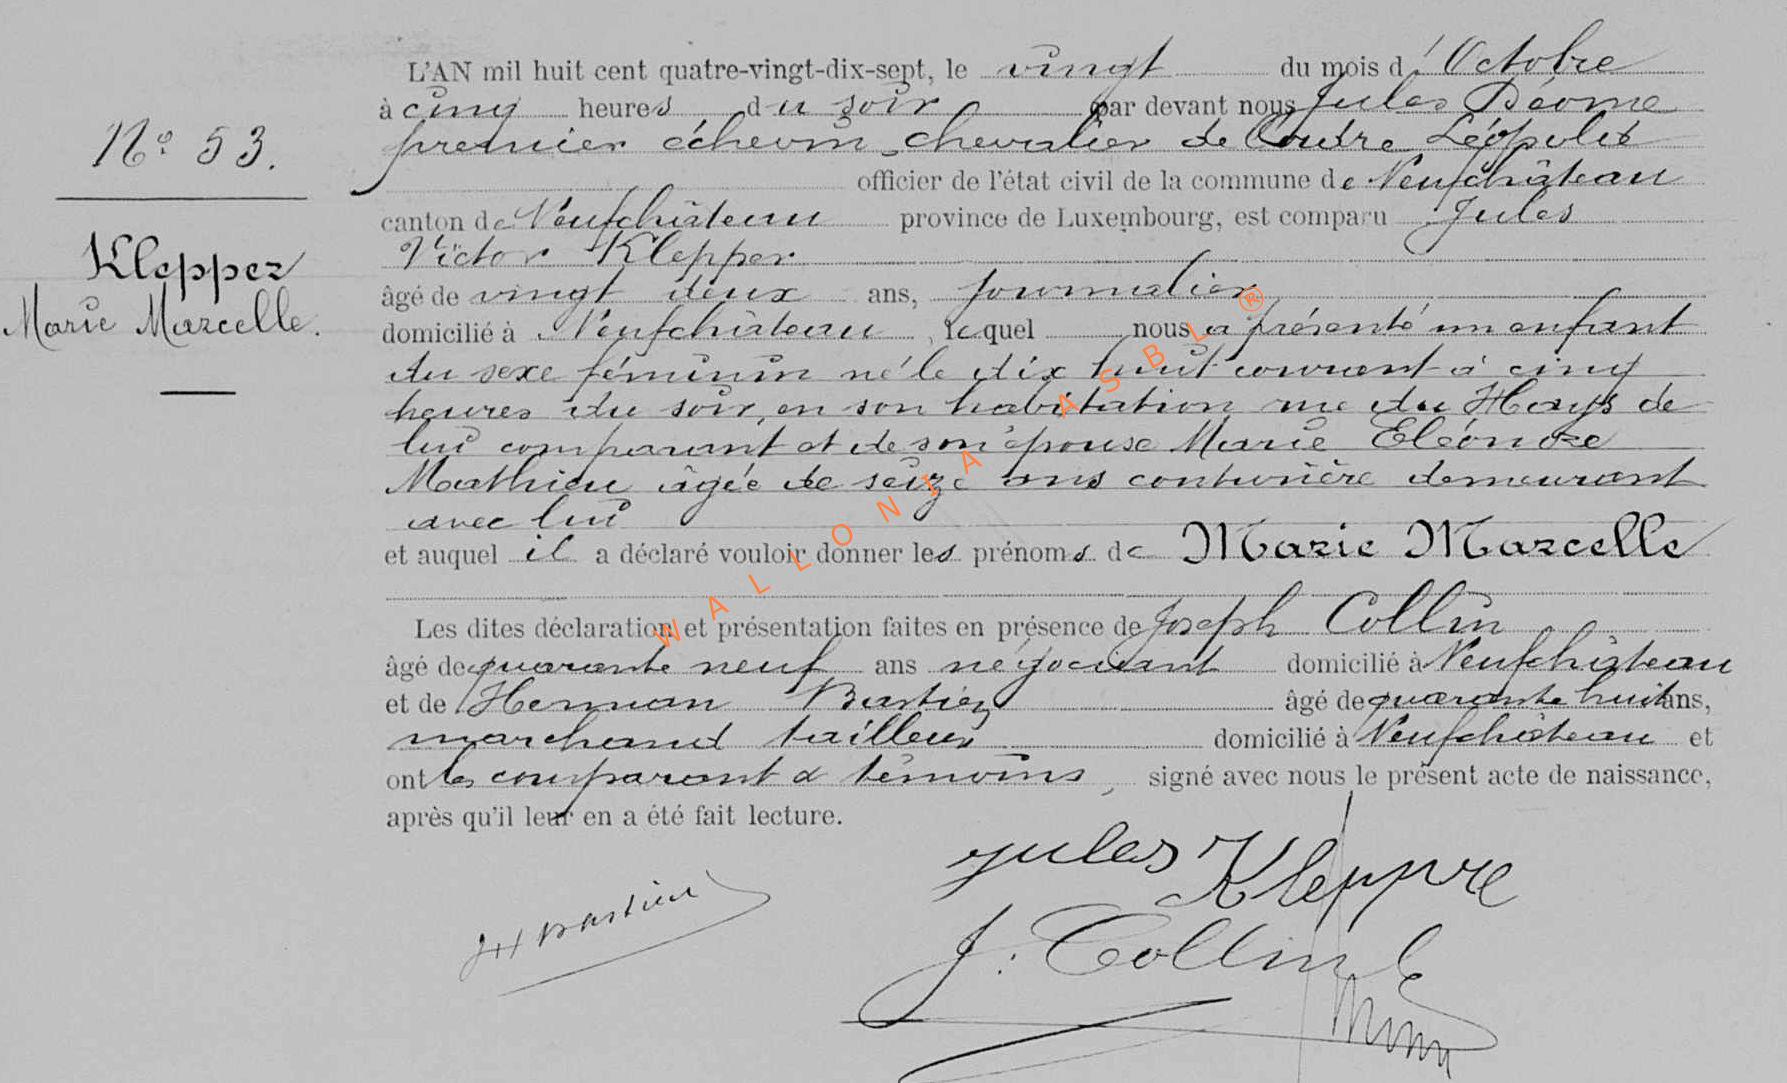 N° 53.
Klepper
Marie Marcelle.
L'AN mil huit cent quatre-vingt-dix-sept, le vingt du mois d'Octobre
à cinq heures du soir par devant nous Jules Déome
premier échevin, chevalier de l'ordre Léopold
officier de l'état civil de la commune de Neufchâteau
canton de Neufchâteau province de Luxembourg, est comparu Jules
Victor Klepper
âgé de vingt deux ans, journalier
domicilié à Neufchâteau, lequel nous a présenté un enfant
du sexe féminin né le dix huit courant à cinq
heures du soir, en son habitation rue du Hays de
lui comparant et de son épouse Marie Eléonore
Mathieu âgée de seize ans couturière demeurant
avec lui
et auquel il a déclaré vouloir donner les prénoms de Marie Marcelle
Les dites déclaration et présentation faites en présence de Joseph Collin
âgé de quarante neuf ans négociant domicilié à Neufchâteau
et de Herman Bastien âgé de quarante huit ans,
marchand tailleur domicilié à Neufchâteau et
ont les comparant & témoins, signé avec nous le présent acte de naissance,
après qu'il leur en a été fait lecture.
Jules Kleppre
H Bastien
J. Collin
WALLONIA ASBL ®